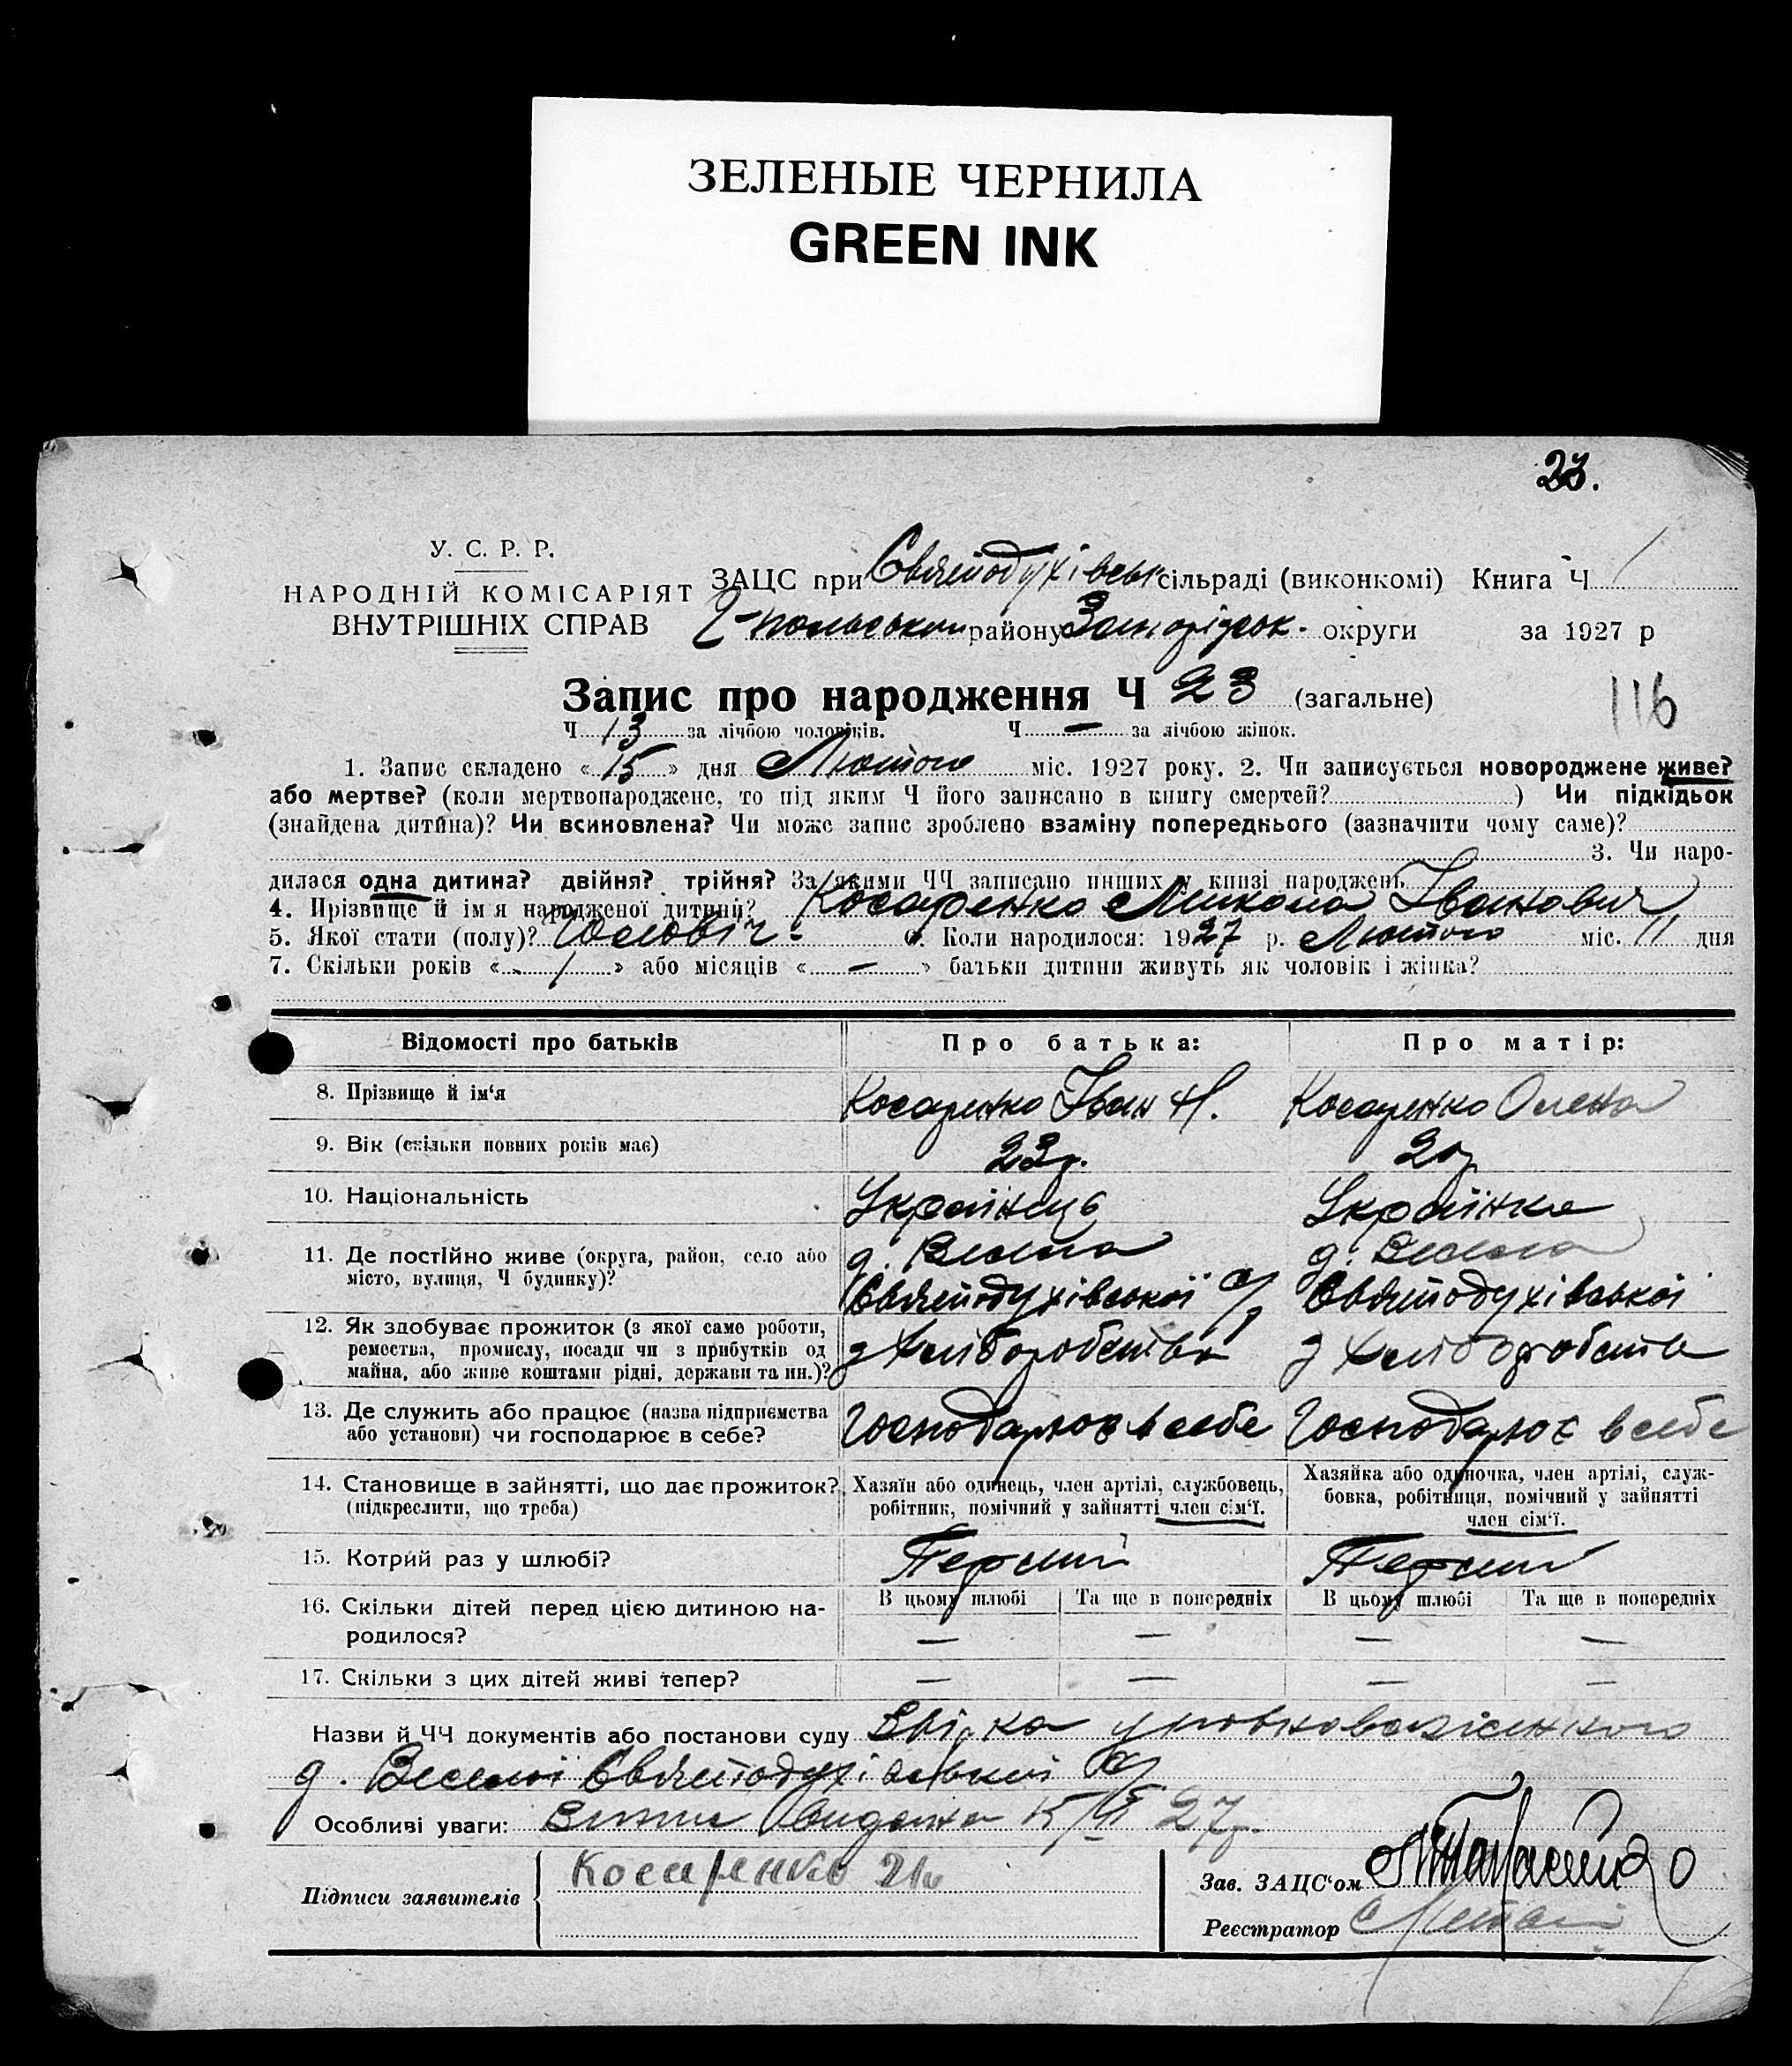 ЗЕЛЕНЫЕ ЧЕРНИЛА
GREEN INK
23.
У. С. Р. Р.
НАРОДНІЙ КОМІСАРІЯТ
ВНУТРІШНІХ СПРАВ
ЗАЦС при Святодухівськ сільраді (виконкомі) Книга Ч 1
району Запорізськ. округи за 1927 р
Запис про народження Ч 23 (загальне)
116
Ч 13 за лічбою чоловіків. Ч — за лічбою жінок.
1. Запис складено « 15 » дня Лютого міс. 1927 року. 2. Чи записується новороджене живе?
або мертве? (коли мертвонароджене, то під яким Ч його записано в книгу смертей? ) Чи підкідьок
(знайдена дитина)? Чи всиновлена? Чи може запис зроблено взаміну попереднього (зазначити чому саме)?
3. Чи наро-
дилася одна дитина? двійня? трійня? За якими ЧЧ записано инших у книзі народжень
4. Прізвище й ім я народженої дитини? Косаренко Микола Іванович
5. Якої стати (полу)? Чоловіч. 6. Коли народилося: 1927 р. Лютого міс. 11 дня
7. Скільки років « 1 » або місяців « — » батьки дитини живуть як чоловік і жінка?
Відомості про батьків Про батька: Про матір:
8. Прізвище й ім'я Косаренко Іван Н. Косаренко Олена
9. Вік (скільки повних років має) 23 р. 20 р.
10. Національність Українець Українка
11. Де постійно живе (округа, район, село або місто, вулиця, Ч будинку)? д. Весела Святодухівської с/р д. Весела Святодухівської
12. Як здобуває прожиток (з якої само роботи, ремества, промислу, посади чи з прибутків од майна, або живе коштами рідні, держави та ин.)? з хліборобства з хліборобства
13. Де служить або працює (назва підприємства або установи) чи господарює в себе? Господарює в себе Господарює в себе
14. Становище в зайнятті, що дає прожиток? (підкреслити, що треба) Хазяїн або одинець, член артілі, службовець, робітник, помічний у зайнятті член сім'ї. Хазяйка або одиночка, член артілі, служ-бовка, робітниця, помічний у зайнятті член сім'ї.
15. Котрий раз у шлюбі? Перший Перший
16. Скільки дітей перед цією дитиною на-родилося? В цьому шлюбі Та ще в попередніх В цьому шлюбі Та ще в попередніх
— — — —
17. Скільки з цих дітей живі тепер? — — — —
Назви й ЧЧ документів або постанови суду уповноваженного
д. Веселої Святодухівської с/р
Особливі уваги: видана 15/II 27 р.
Підписи заявителів Косаренко
Зав. ЗАЦС'ом
Реєстратор